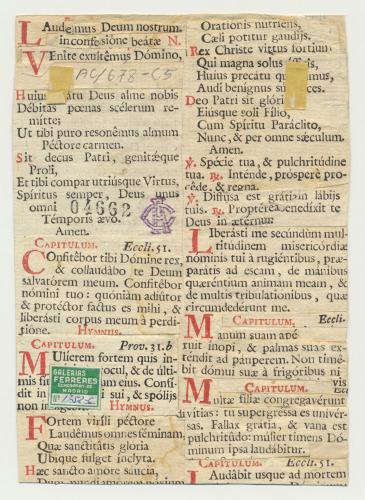 LAudemus Deum nostrum.
in confessióne beátæ N.
VEnite exultémus Dómino,
AC/678-C5
Huius Deus alme nobis
Débitas pœnas scélerum re-
mítte;
Ut tibi puro resonémus almum
Péctore carmen.
Sit decus Patri, genitǽque
Proli,
Et tibi compar utriúsque Virtus,
Spíritus semper, Deus unus
omni
04662
Témporis ævo.
Amen.
CAPITULUM. Eccli. 51.
COnfitébor tibi Dómine rex,
& collaudábo te Deum
salvatórem meum. Confitébor
nómini tuo: quóniam adiútor
& protéctor factus es mihi, &
liberásti corpus meum à perdi-
tióne. HYMNUS.
CAPITULUM. Prov. 31. b
MUlíerem fortem quis in-
GALERIAS
FERRERES
MADRID
HYMNUS.
FOrtem viríli péctore
Laudémus omnes féminam,
Quæ sanctitátis glória
Ubíque fulget ínclyta.
Hæc sancto amóre sáucia,
Oratiónis nútriens,
Cæli potítur gáudijs.
Rex Christe virtus fórtium,
Qui magna solus
Huius precátu
Audi benígnus
Deo Patri sit glóri
Eiúsque soli Fílio,
Cum Spíritu Paráclito,
Nunc, & per omne sǽculum.
Amen.
℣. Spécie tua, & pulchritúdine
tua. ℟. Inténde, próspere pro-
céde, & regna.
℣. Diffúsa est grátia in lábijs
tuis. ℟. Proptérea benedíxit te
Deus in ætérnum.
LIberásti me secúndùm mul-
titúdinem misericórdiæ
nóminis tui à rugiéntibus, præ-
parátis ad escam, de mánibus
quæréntium ánimam meam, &
de multis tribulatiónibus, quæ
circumdedérunt me.
CAPITULUM. Eccli-
MAnum suam apé
ruit ínopi, & palmas suas ex-
téndit ad páuperem. Non timé-
bit dómui suæ à frigóribus ni
CAPITULUM.
MUltæ fíliæ congregavérunt
divítias: tu supergréssa es univér-
sas. Fallax grátia, & vana est
pulchritúdo: múlier timens Dó-
minum ipsa laudábitur.
CAPITULUM. Eccli. 51.
LAudábit usque ad mortem